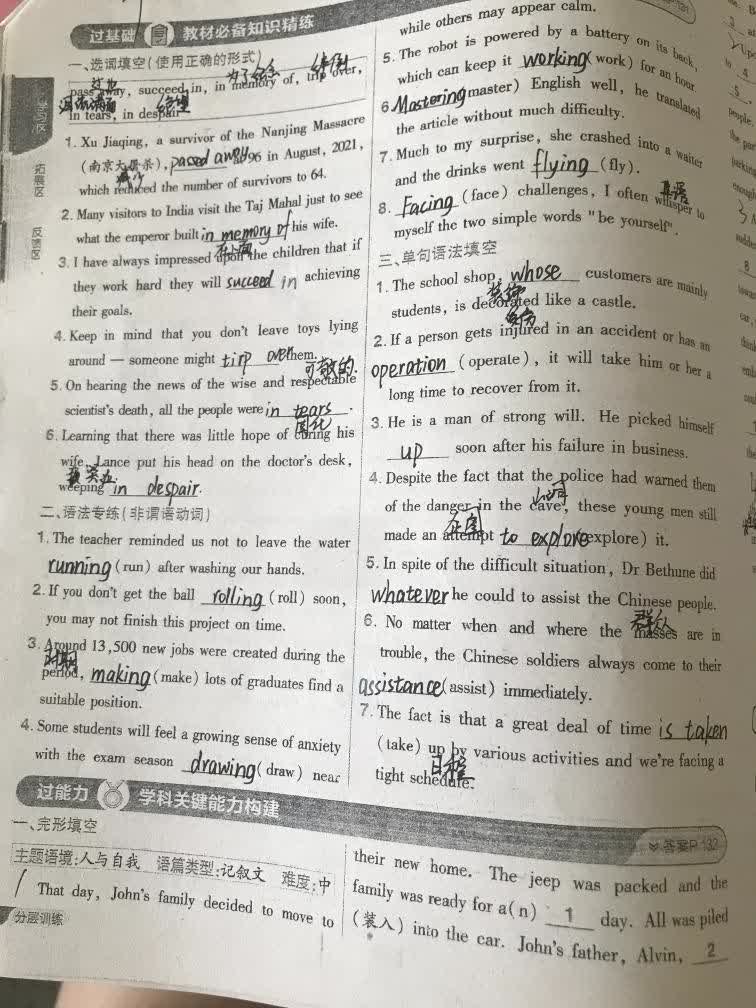 过基础 习 教材必备知识精练
一、选词填空(使用正确的形式)
过世 为了纪念 绊倒
pass away, succeed in, in memory of, trip over,
泪流满面 绝望
in tears, in despair
1. Xu Jiaqing, a survivor of the Nanjing Massacre
(南京大屠杀), passed away at 96 in August, 2021,
减少
which reduced the number of survivors to 64.
2. Many visitors to India visit the Taj Mahal just to see
what the emperor built in memory of his wife.
3. I have always impressed upon the children that if
they work hard they will succeed in achieving
their goals.
4. Keep in mind that you don't leave toys lying
around — someone might tirp over them.
可敬的
5. On hearing the news of the wise and respectable
scientist's death, all the people were in tears.
6. Learning that there was little hope of curing his
wife, Lance put his head on the doctor's desk,
weeping in despair.
二、语法专练(非谓语动词)
1. The teacher reminded us not to leave the water
running (run) after washing our hands.
2. If you don't get the ball rolling (roll) soon,
you may not finish this project on time.
3. Around 13,500 new jobs were created during the
时期
period, making (make) lots of graduates find a
suitable position.
4. Some students will feel a growing sense of anxiety
with the exam season drawing (draw) near
while others may appear calm.
5. The robot is powered by a battery on its back,
which can keep it working (work) for an hour.
6 Mastering master) English well, he translated
the article without much difficulty.
7. Much to my surprise, she crashed into a waiter
and the drinks went flying (fly).
8. Facing (face) challenges, I often whisper to
myself the two simple words "be yourself".
三、单句语法填空
1. The school shop, whose customers are mainly
装饰
students, is decorated like a castle.
2. If a person gets injured in an accident or has an
operation (operate), it will take him or her a
long time to recover from it.
3. He is a man of strong will. He picked himself
up soon after his failure in business.
4. Despite the fact that the police had warned them
山洞
of the danger in the cave, these young men still
企图
made an attempt to explore explore) it.
5. In spite of the difficult situation, Dr Bethune did
whatever he could to assist the Chinese people.
群众
6. No matter when and where the masses are in
trouble, the Chinese soldiers always come to their
assistance (assist) immediately.
7. The fact is that a great deal of time is taken
(take) up by various activities and we're facing a
日程
tight schedule.
过能力 学科关键能力构建
答案P 132
一、完形填空
主题语境:人与自我 语篇类型:记叙文 难度:中
That day, John's family decided to move to
their new home. The jeep was packed and the
family was ready for a(n) 1 day. All was piled
(装入) into the car. John's father, Alvin, 2
分层训练
学习区
拓展区
反馈区